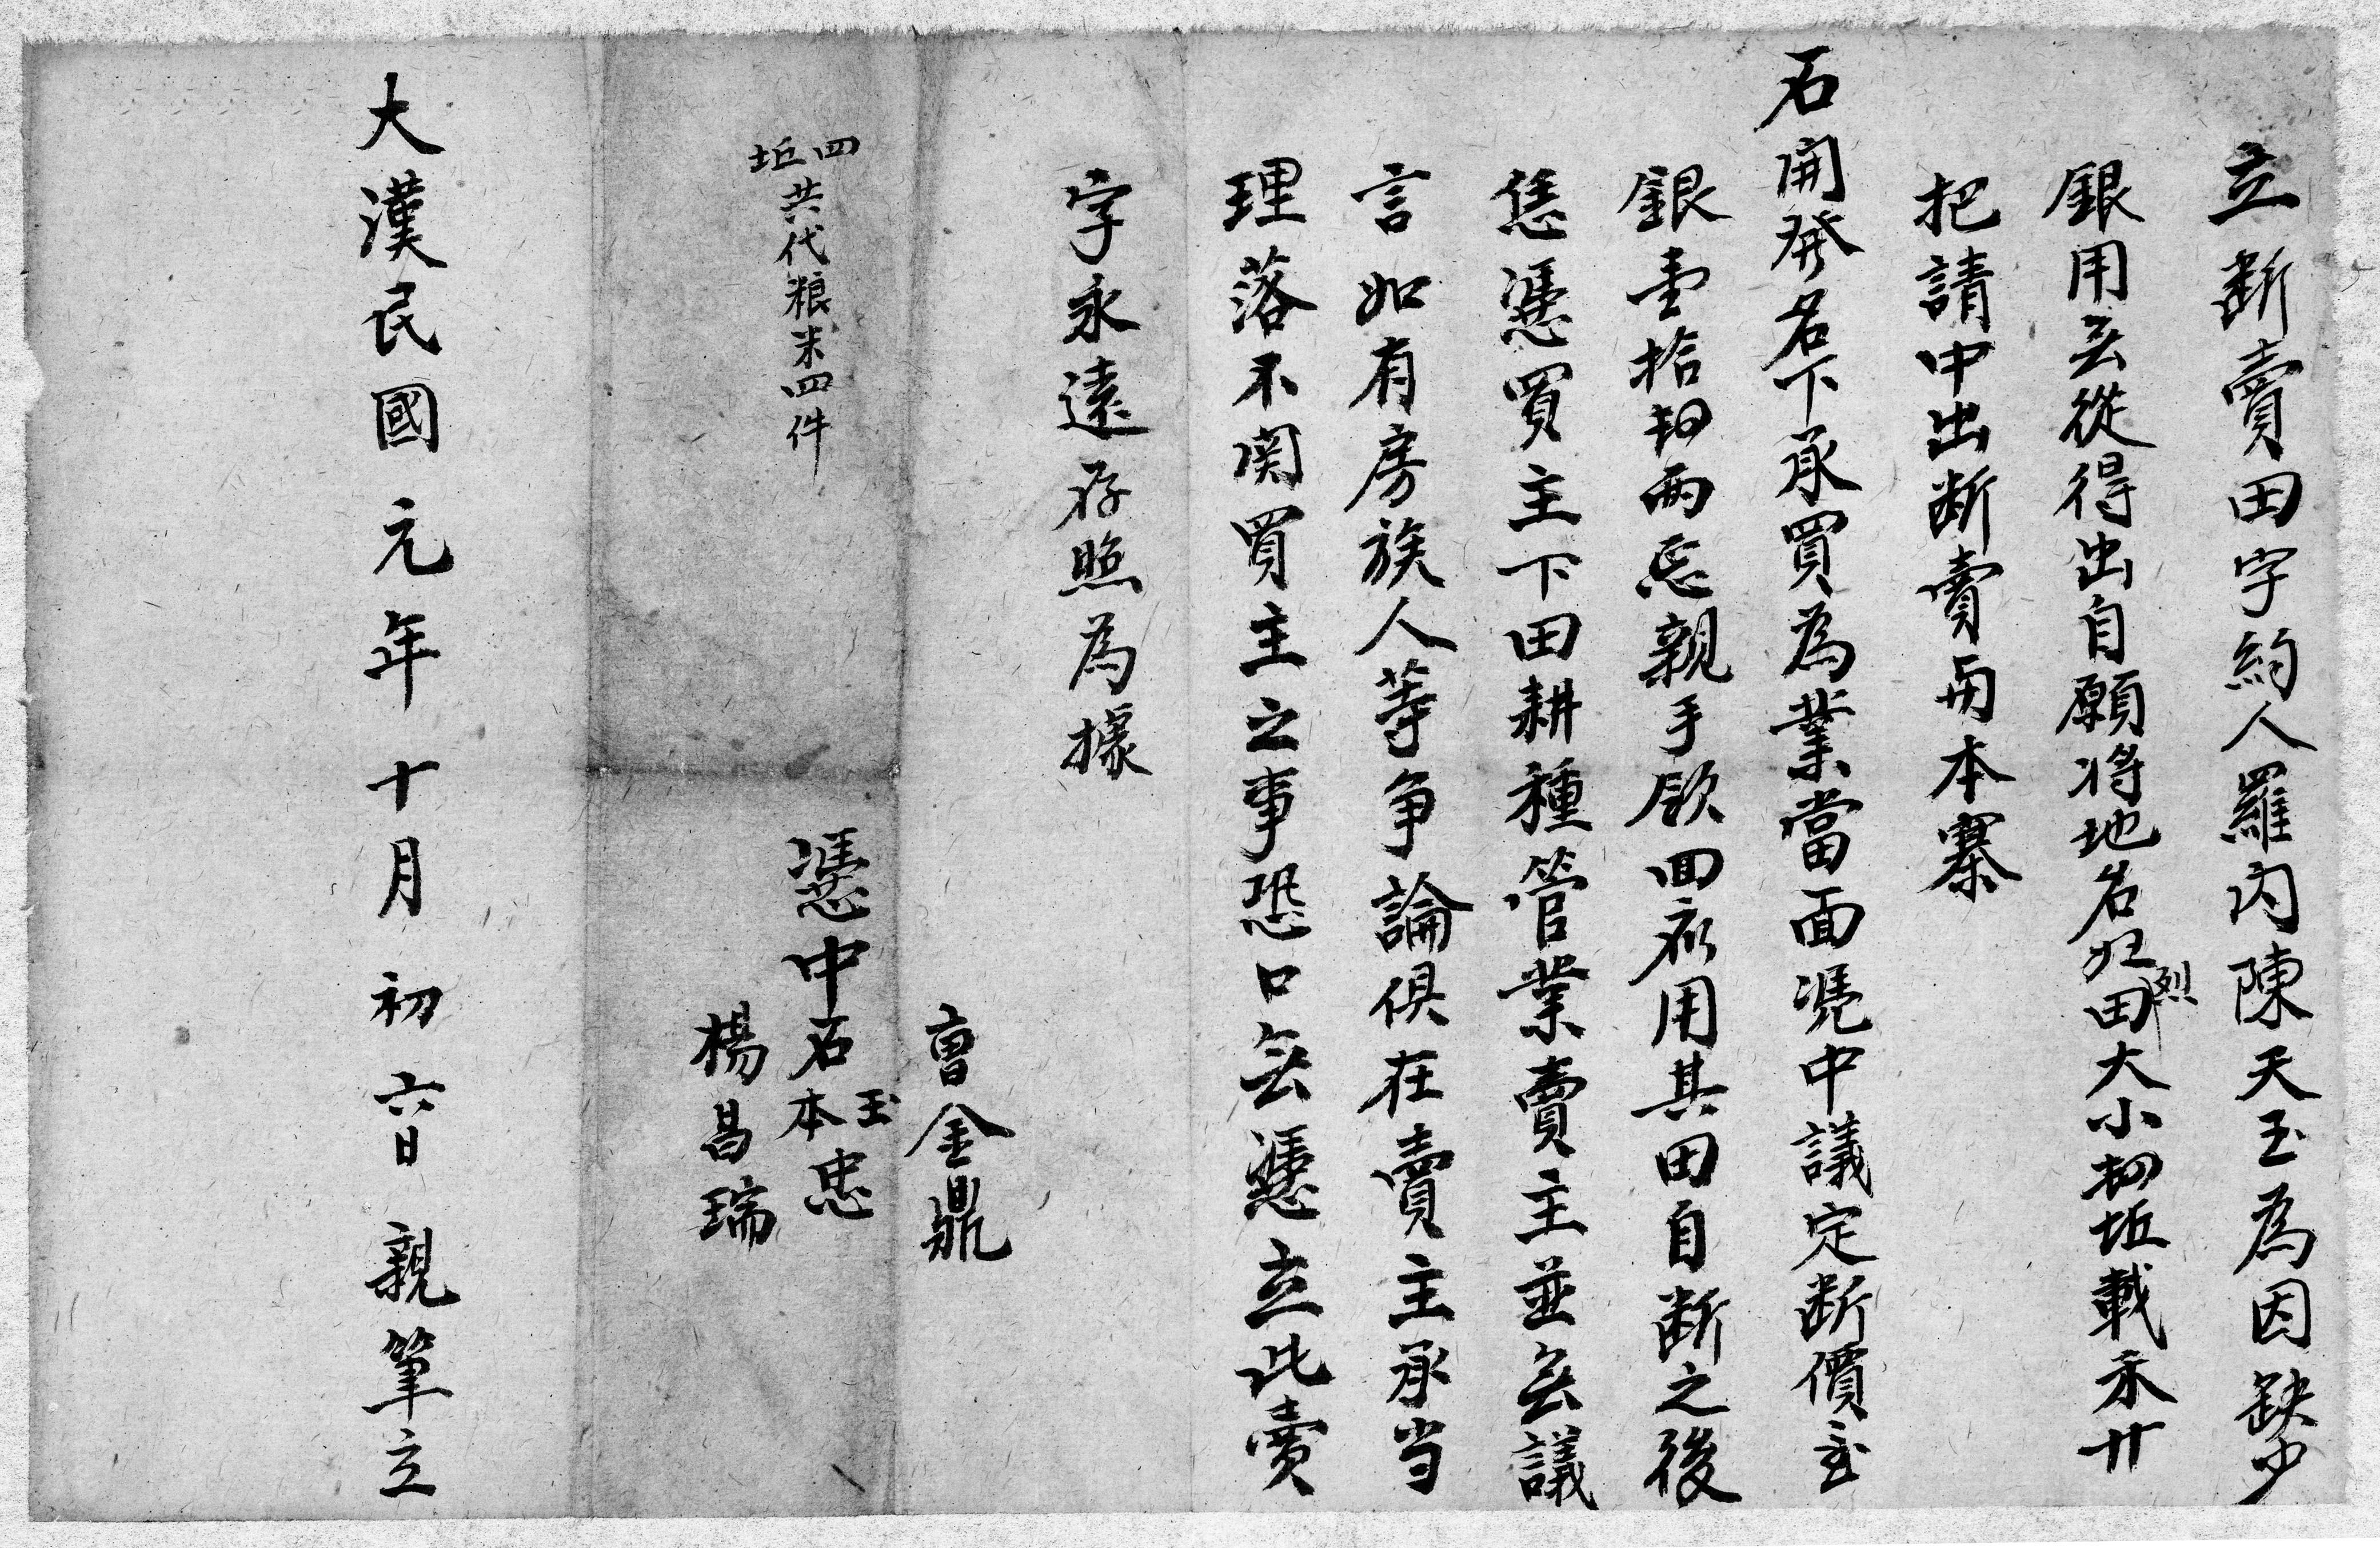 立断賣田字約人羅内陳天玉為因缺少
銀用无從得出自願将地名圯烈田大小四坵載禾廿
把請中出断賣与本寨
石開發名下承買為業當面凴中議定断價
銀壹拾四两忘親手領回應用其田自断之後
恁憑買主下田耕種管業賣主並無議
言如有房族人等争論俱在賣主承当
理落不関買主之事恐口無憑立此賣
字永遠存照為據
曹金鼎
憑中石本玉忠
楊昌瑞
四坵共代粮米四件
大漢民國元年十月初六日親筆立